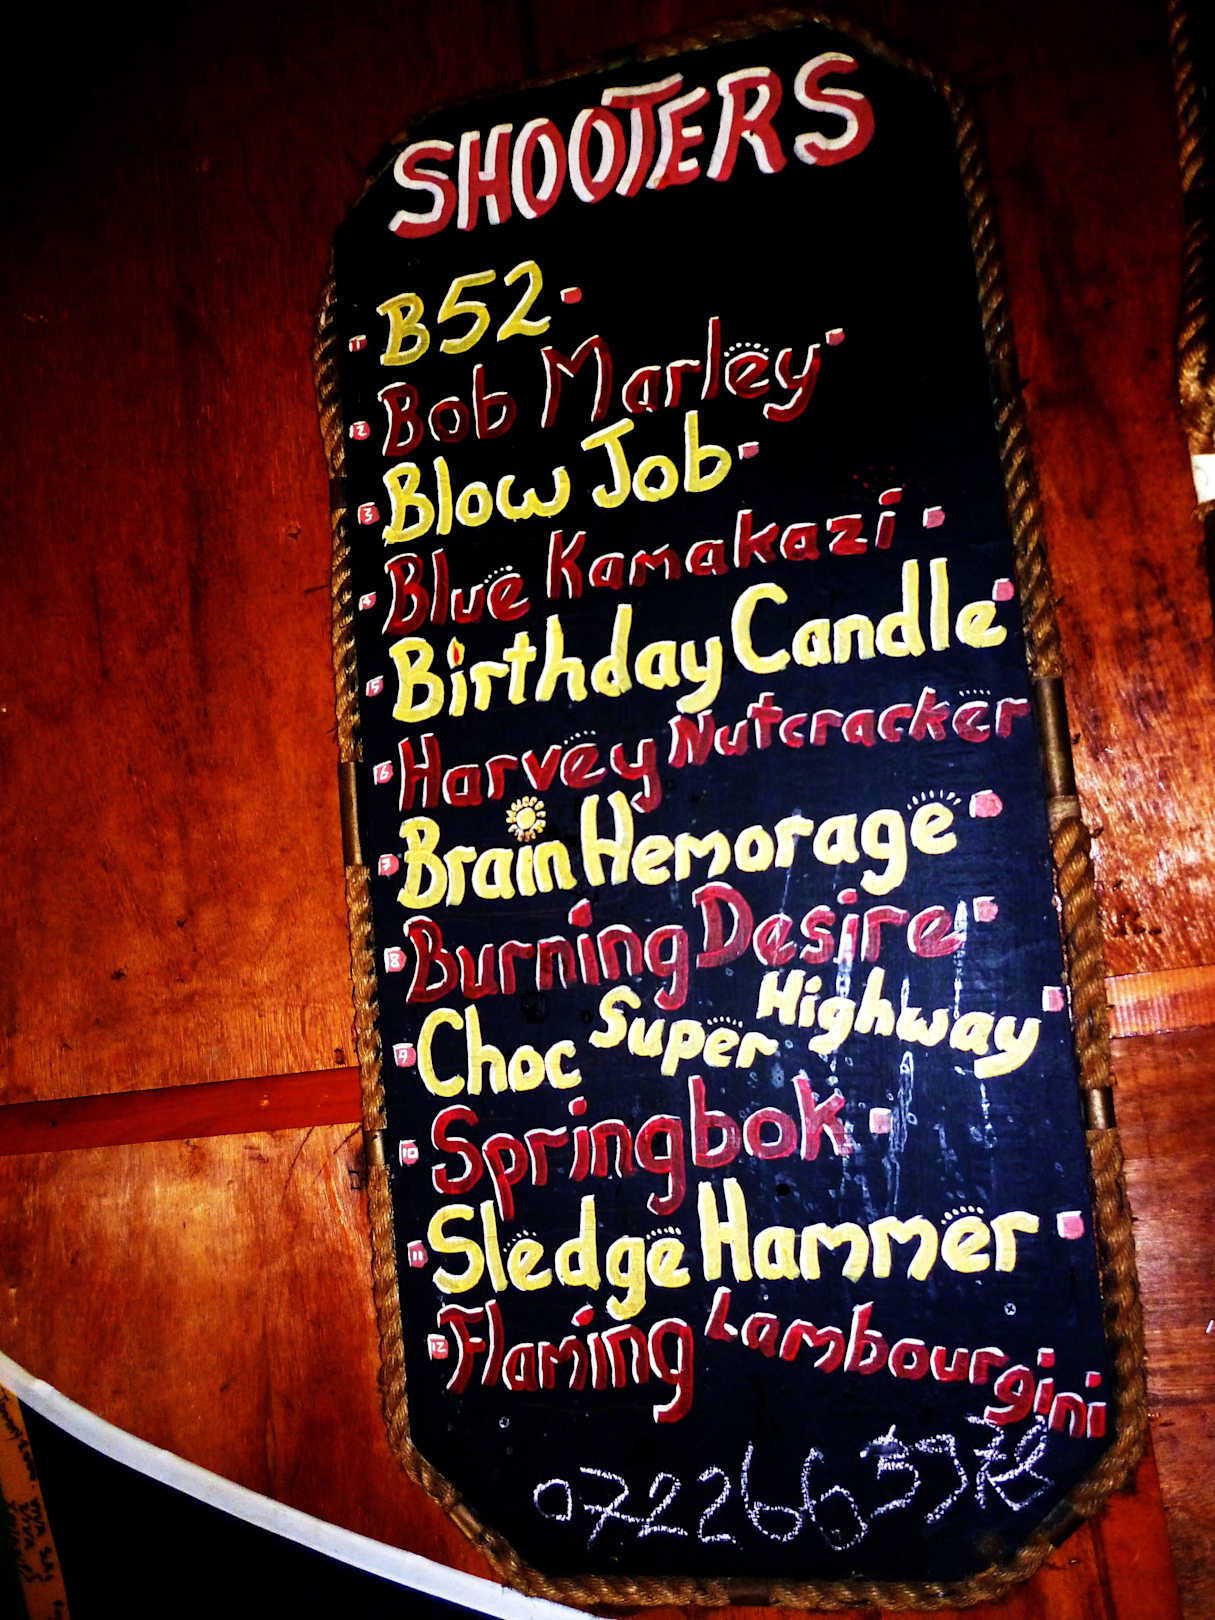 SHOOTERS
1 B52
2 Bob Marley
3 Blow Job
4 Blue Kamakazi
5 Birthday Candle
6 Harvey Nutcracker
7 Brain Hemorage
8 Burning Desire
9 Choc Super Highway
10 Springbok
11 Sledge Hammer
12 Flaming Lambourgini